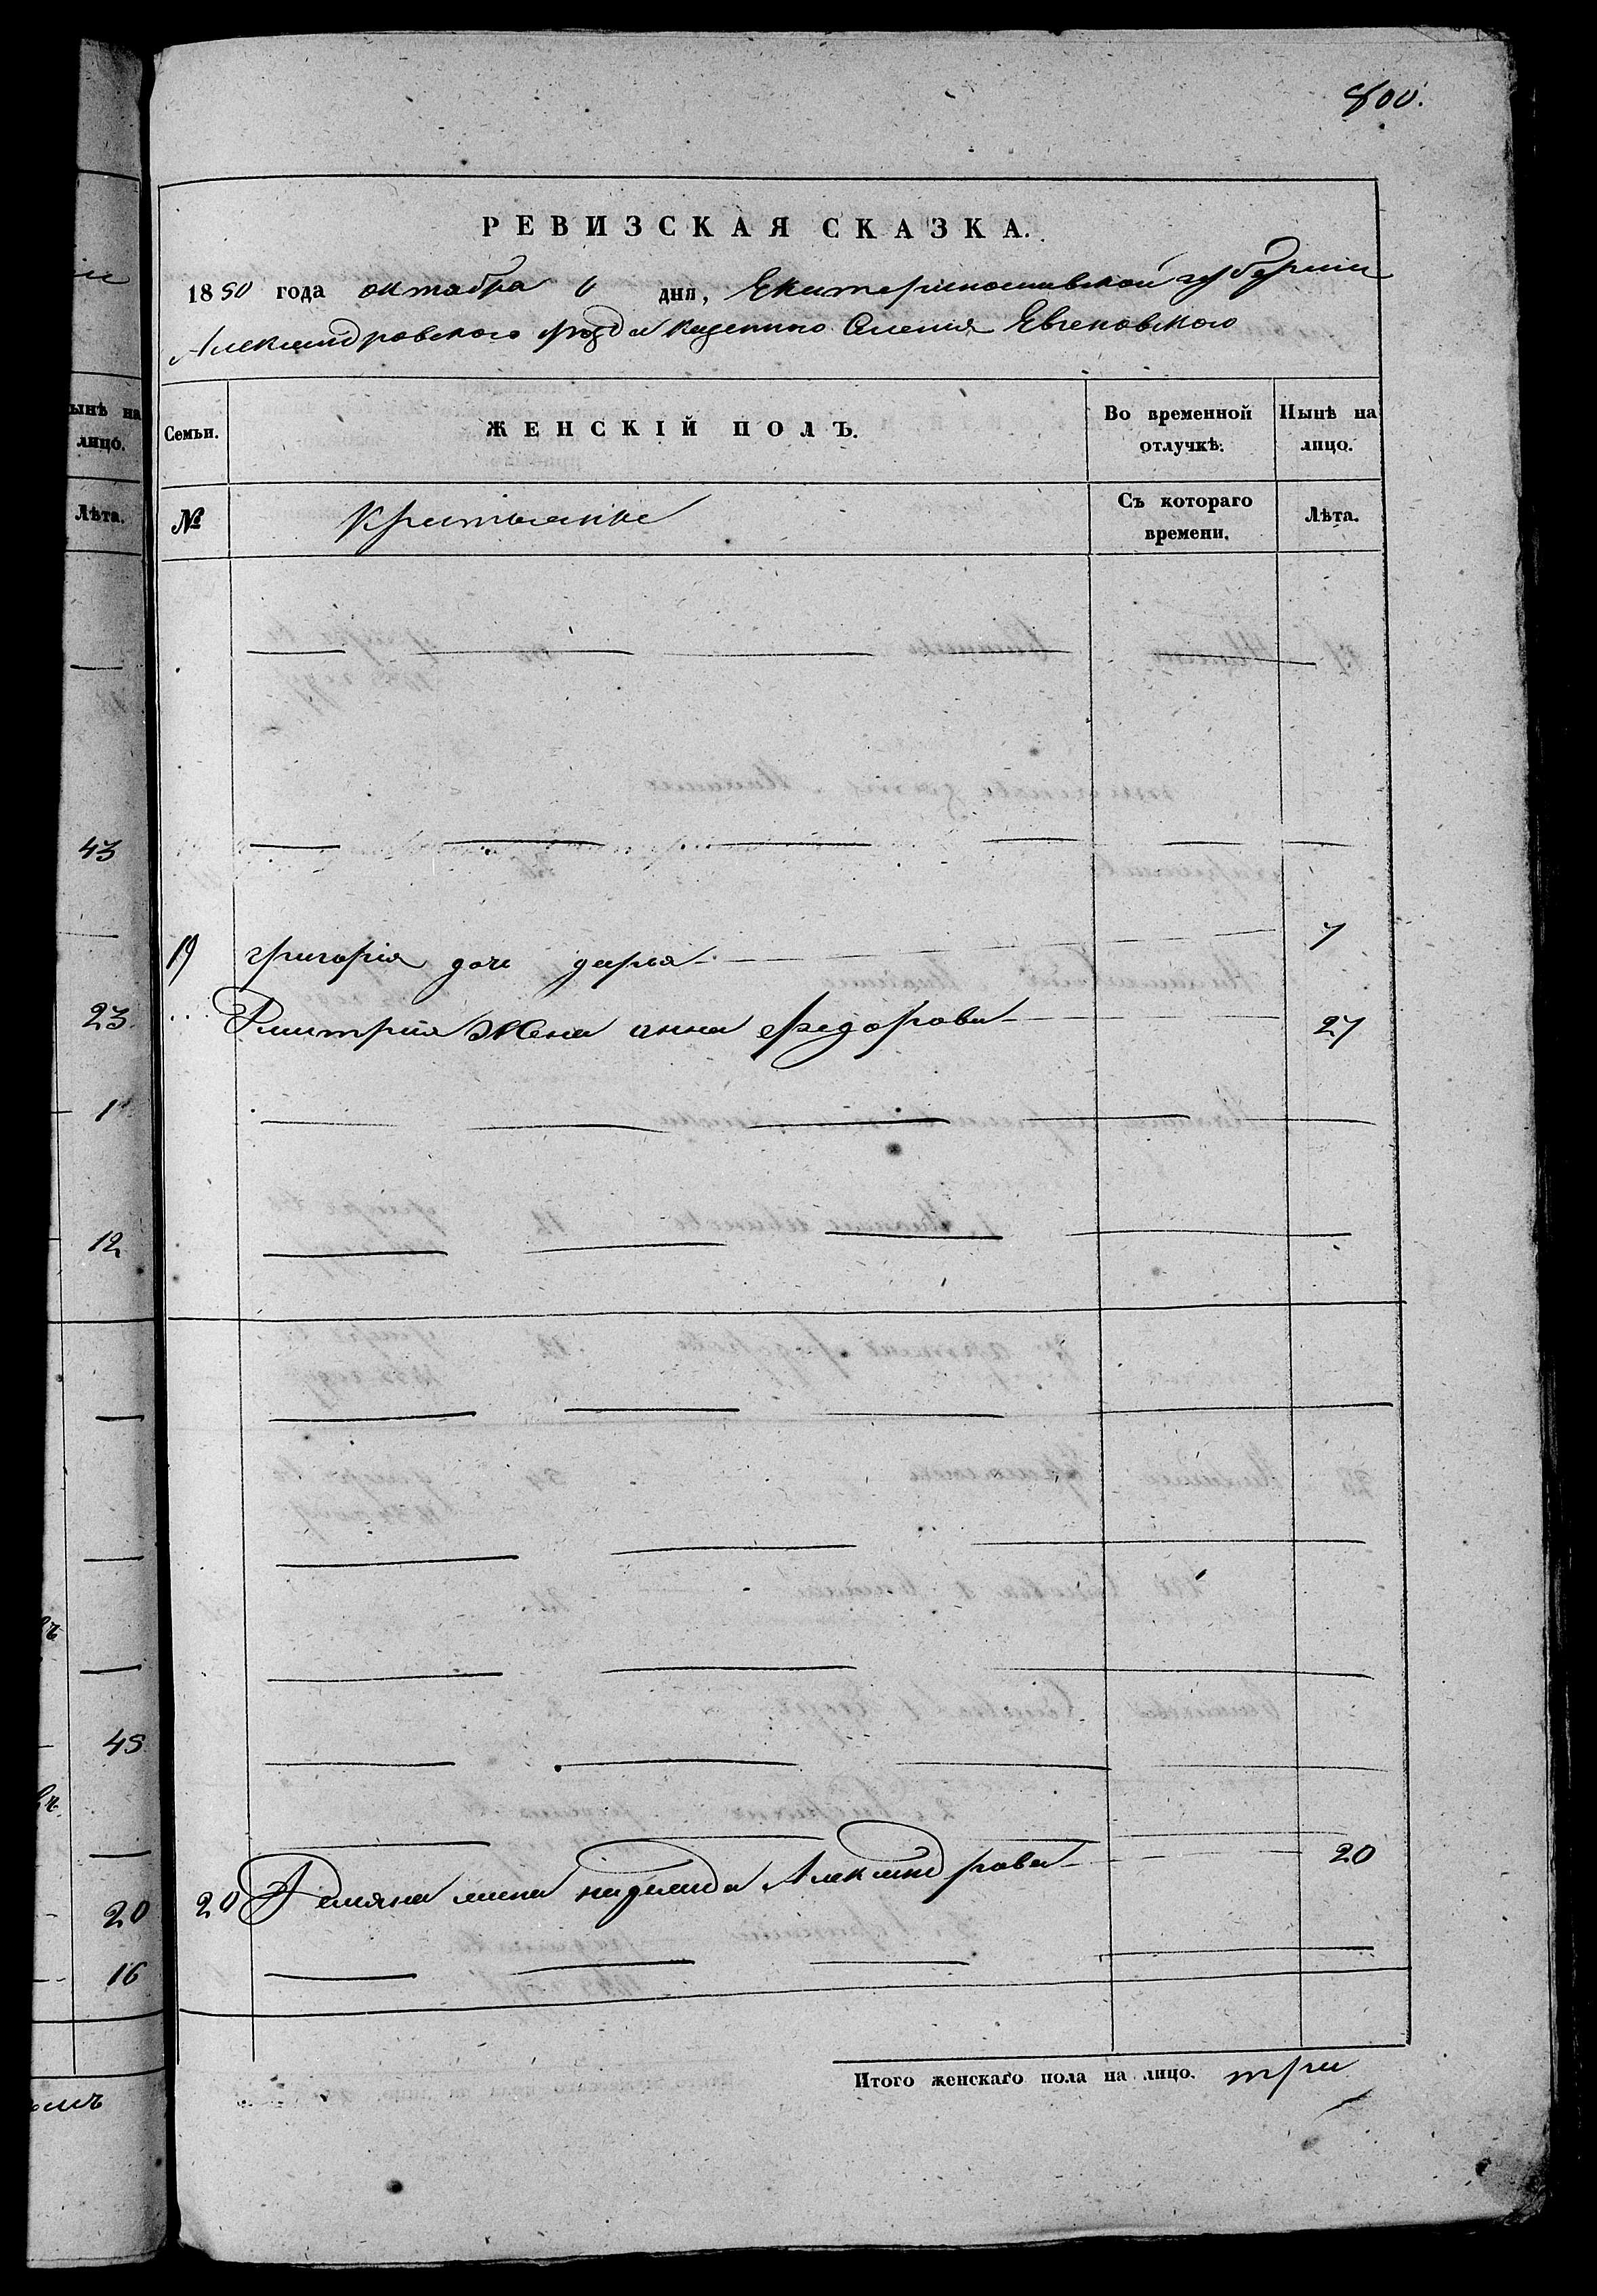 800.
РЕВИЗСКАЯ СКАЗКА.
1850 года октабра 6 дня, Екатеринославской губернии
Александровского уезда казенного Селения Евгеновского
Семьи. ЖЕНСКІЙ ПОЛЪ. Во временной отлучкѣ. Нынѣ на лицо.
№ Съ котораго времени. Лѣта.
19 григорія дочь дарья 7
Дмитрия Жена анна федорова 27
20 Демяна жена надежда Александрова 20
Итого женскаго пола на лицо. три
ынѣ на
лицо.
Лѣта.
43
23.
1
12
45
20
16